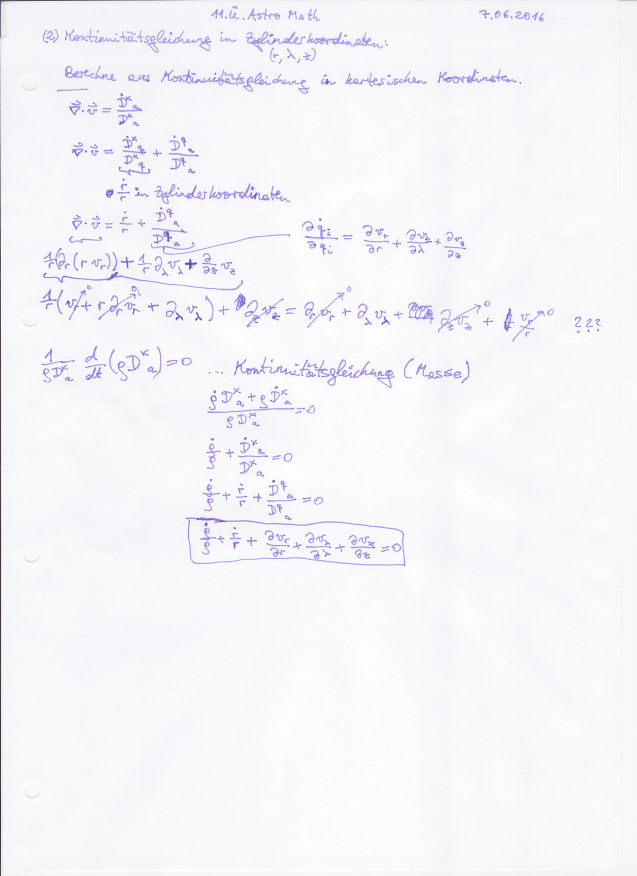 11.Ü. Astro Math 7.06.2016
(2) Kontinuitätsgleichung in Zylinderkoordinaten:
(r, λ, z)
Berechne aus Kontinuitätsgleichung in kartesischen Koordinaten.
∇⃗·v⃗ = Ḋˣₐ / Dˣₐ
∇⃗·v⃗ = Ḋˣ_q / Dˣ_q + Ḋ^qₐ / D^qₐ
ṙ/r in Zylinderkoordinaten
∇⃗·v⃗ = ṙ/r + Ḋ^qₐ / D^qₐ
∂q̇ᵢ/∂qᵢ = ∂v_r/∂r + ∂v_λ/∂λ + ∂v_z/∂z
1/r (∂_r (r v_r)) + 1/r ∂_λ v_λ + ∂/∂z v_z
1/r (v_r + r ∂_r v_r + ∂_λ v_λ) + ∂_z v_z = ∂_r v_r + ∂_λ v_λ + ∂_z v_z + v_r/r ???
1/(ρDˣₐ) d/dt (ρDˣₐ) = 0 ... Kontinuitätsgleichung (Masse)
(ρ̇ Dˣₐ + ρ Ḋˣₐ) / (ρ Dˣₐ) = 0
ρ̇/ρ + Ḋˣₐ/Dˣₐ = 0
ρ̇/ρ + ṙ/r + Ḋ^qₐ/D^qₐ = 0
ρ̇/ρ + ṙ/r + ∂v_r/∂r + ∂v_λ/∂λ + ∂v_z/∂z = 0